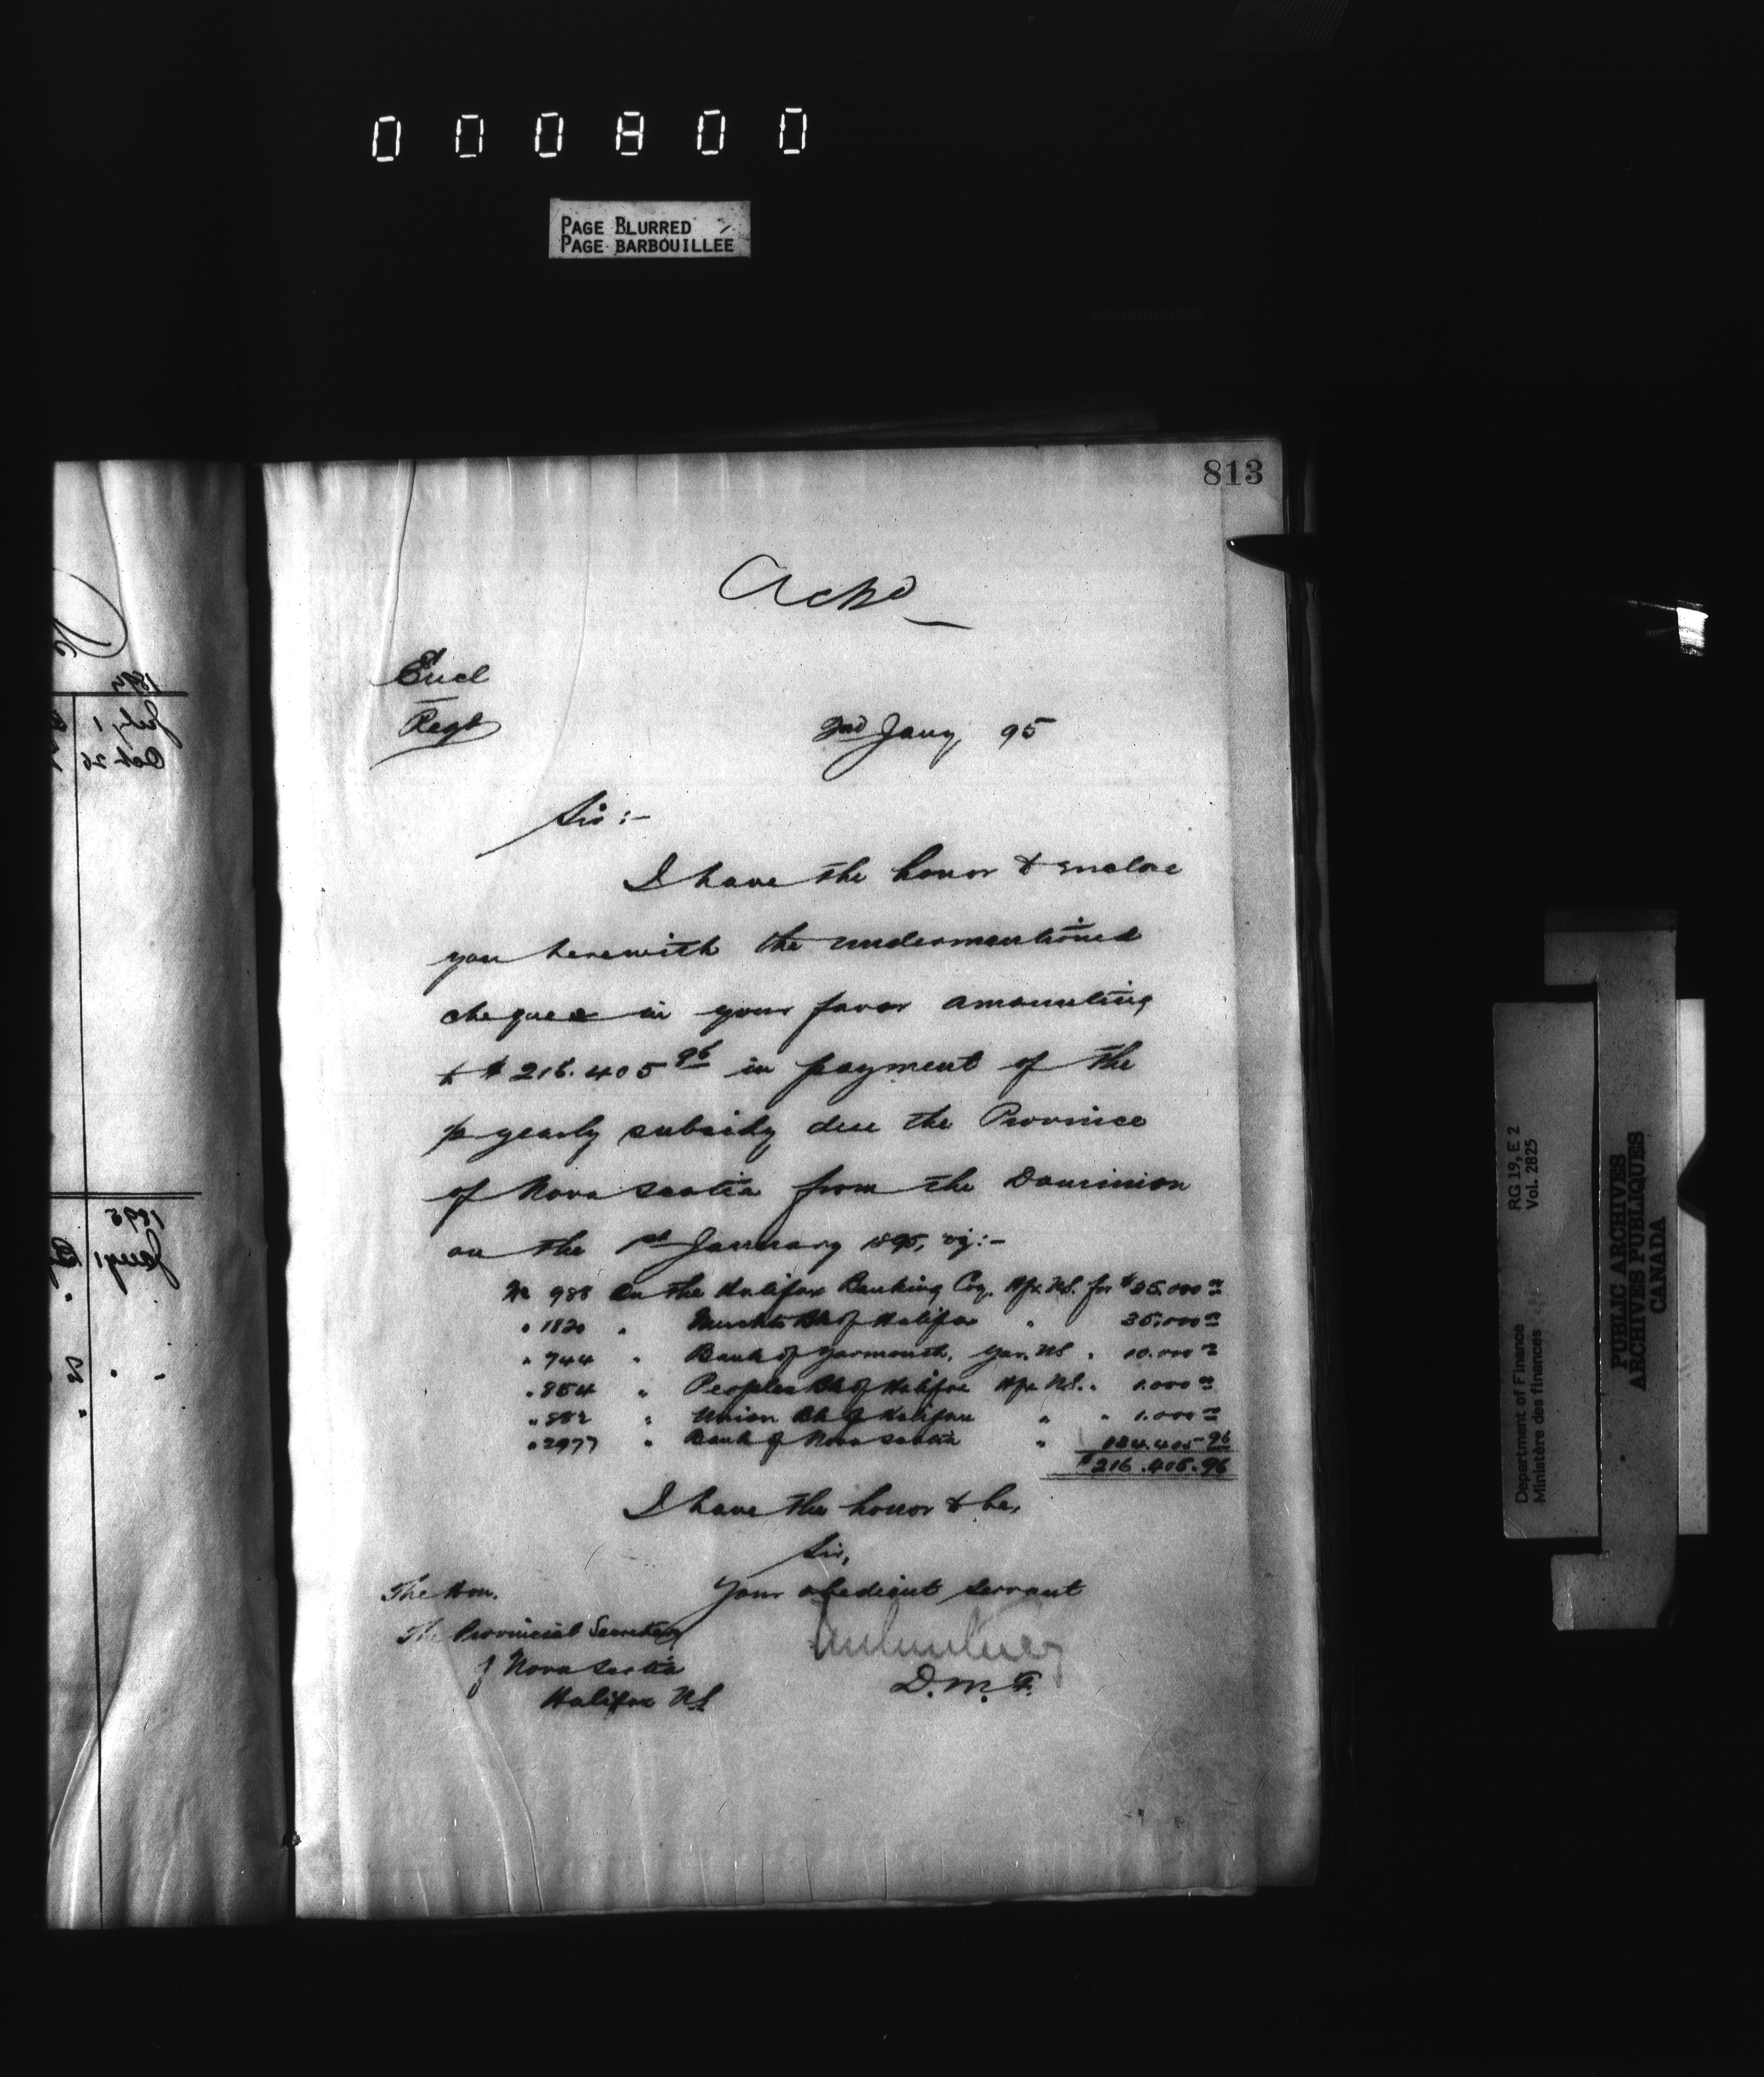 000800
PAGE BLURRED
PAGE BARBOUILLEE
813
Ackd
Encl
Regd
2nd Jany 95
Sir:-
I have the honor to enclose
you herewith the undermentioned
cheques in your favor amounting
to $216.405 96 in payment of the
½ yearly subsidy due the Province
of Nova Scotia from the Dominion
on the 1st January 1895, viz:-
No 988 On the Halifax Banking Coy. Hfx. N.S. for $35.000 00
" 1820 " Merchts Bk of Halifax " 35,000 00
" 744 " Bank of Yarmouth, Yar. N.S. " 10.000 00
" 854 " Peoples Bk of Halifax Hfx N.S. " 1.000 00
" 882 " Union Bk of Halifax " " 1.000 00
" 2977 " Bank of Nova Scotia " 134.405-96
$216.405.96
I have the honor to be,
Sir,
Your obedient servant
D.M.F.
The Hon.
The Provincial Secretary
of Nova Scotia
Halifax N.S.
1893
July 1
Oct 26
1895
Jany 1
RG 19, E 2
Vol. 2825
Department of Finance
Ministère des finances
PUBLIC ARCHIVES
ARCHIVES PUBLIQUES
CANADA